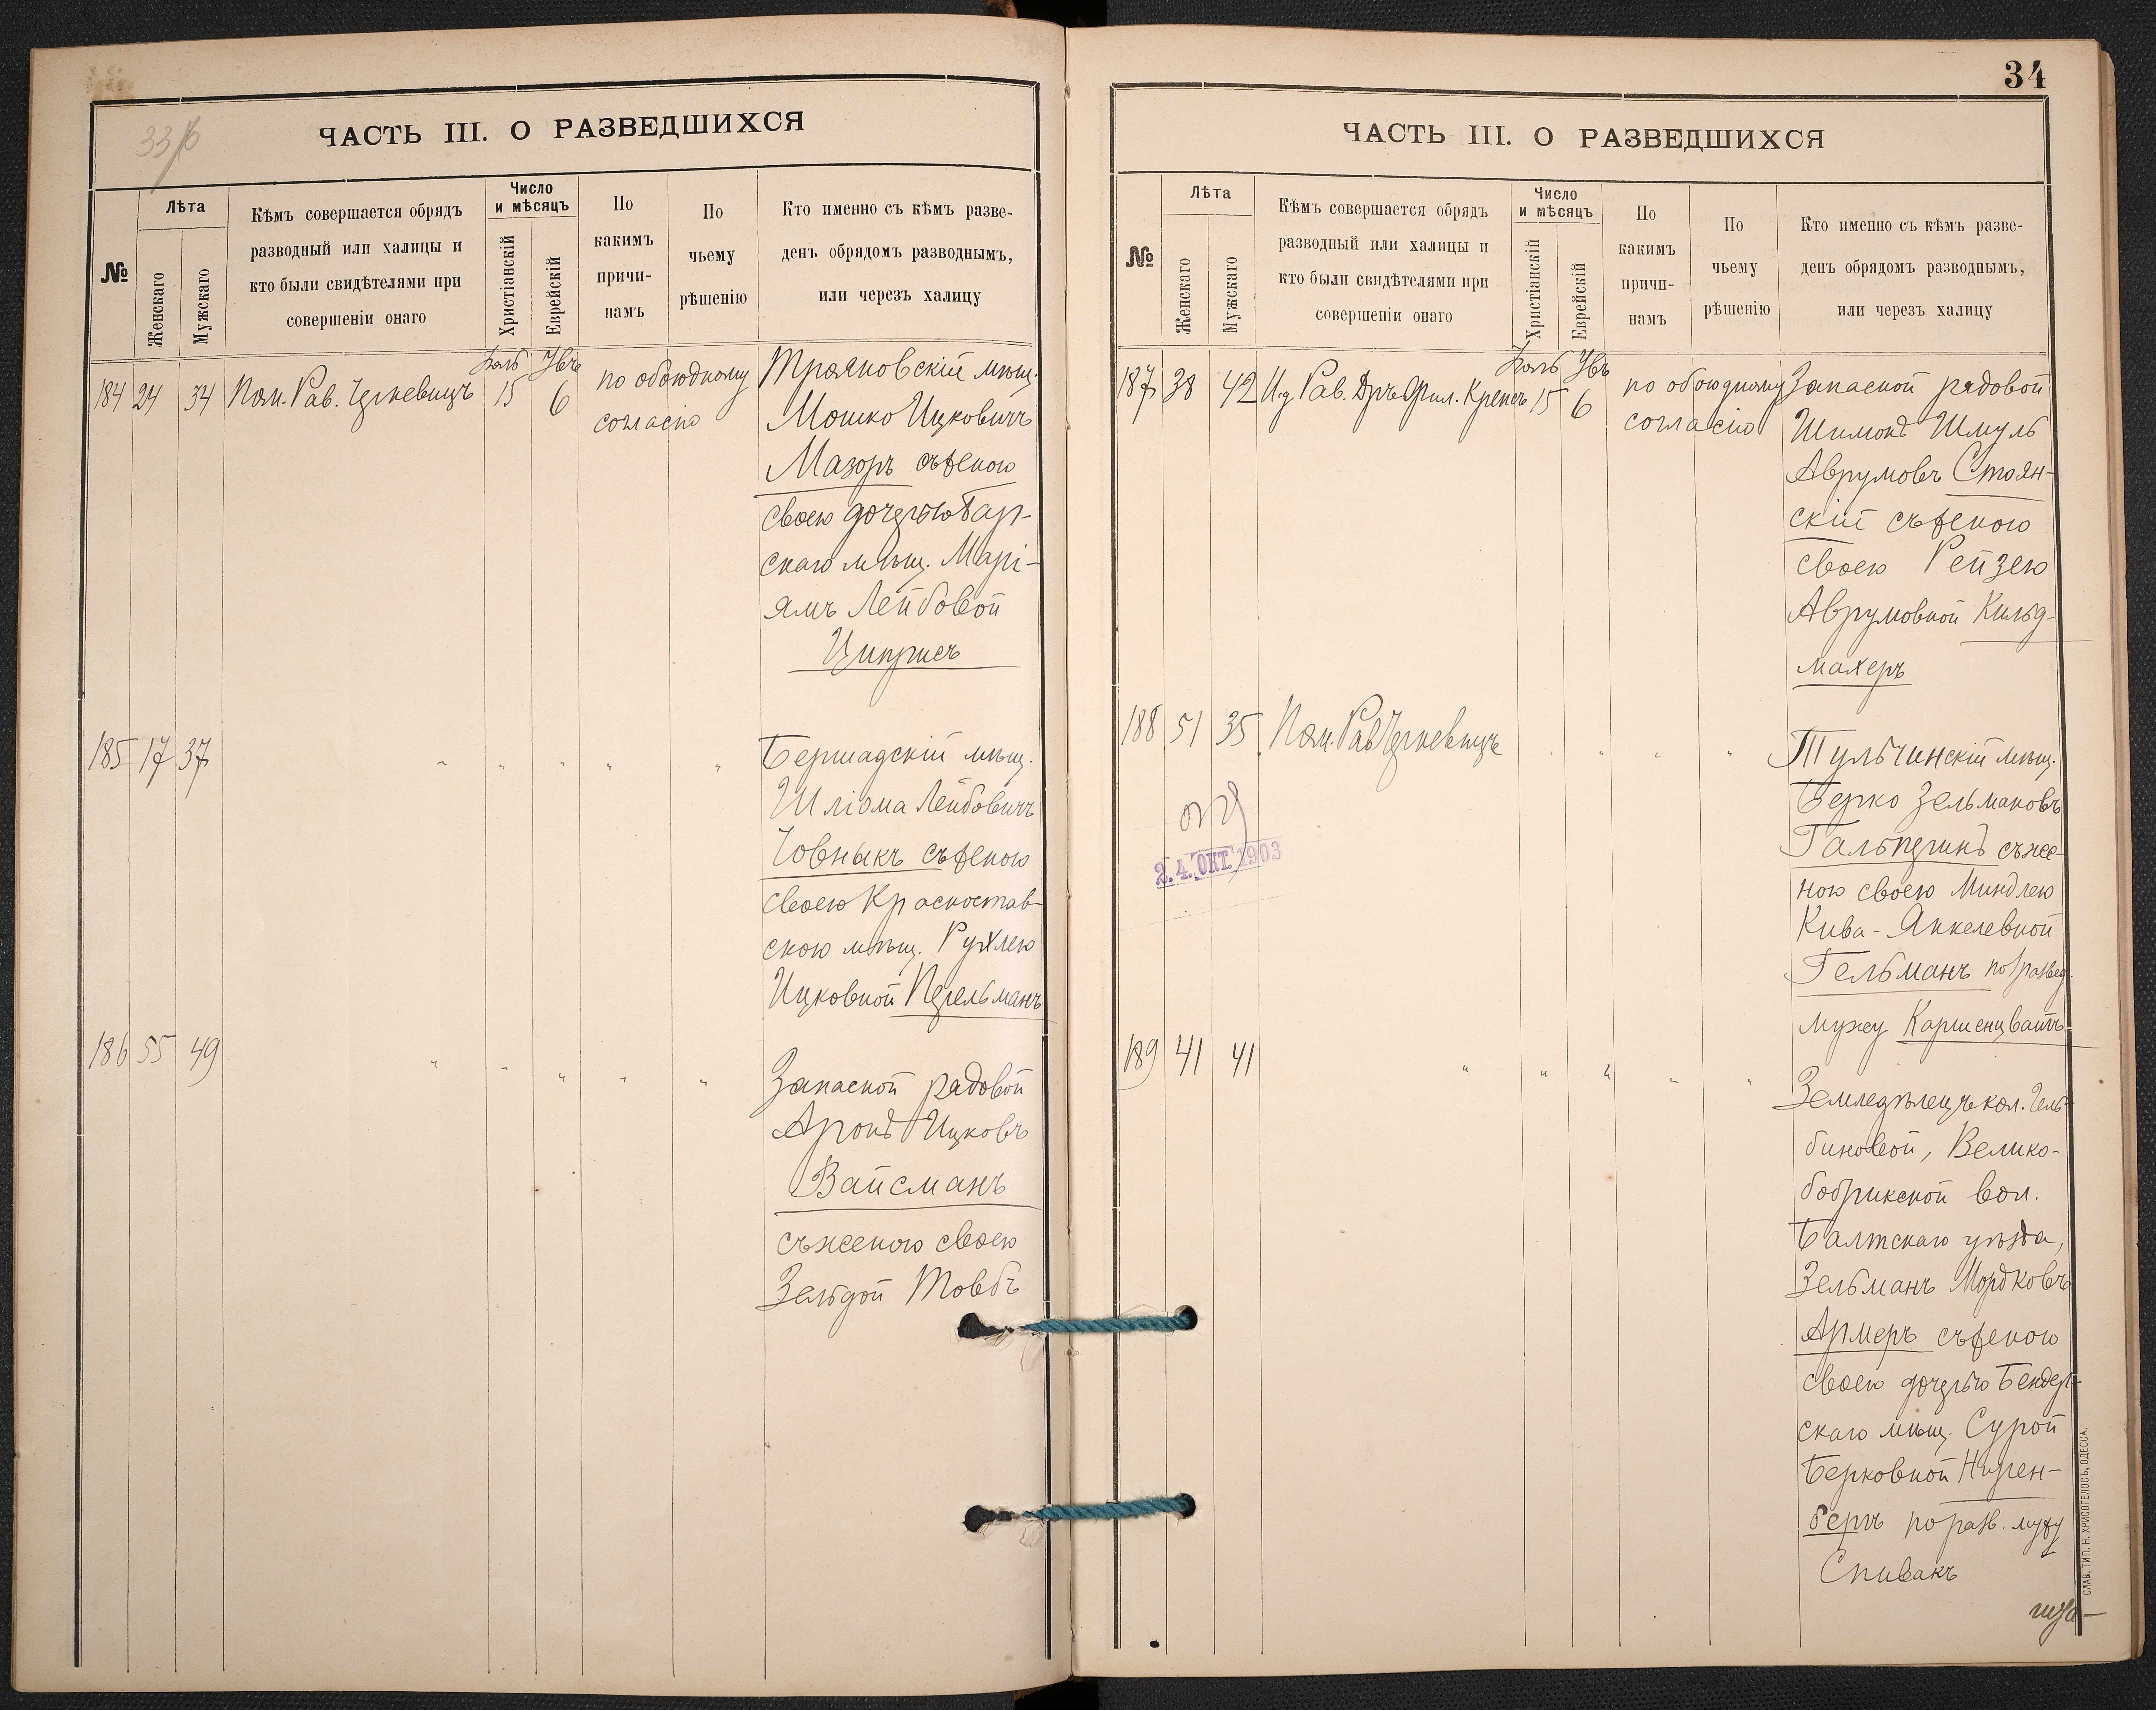 ЧАСТЬ III. О РАЗВЕДШИХСЯ
№
Лѣта
Женскаго
Мужскаго
Кѣмъ совершается обрядъ
разводный или халицы и
кто были свидѣтелями при
совершеніи онаго
Число
и мѣсяцъ
Христіанскій
Еврейскій
По
какимъ
причи-
намъ
По
чьему
рѣшенію
Кто именно съ кѣмъ разве-
денъ обрядомъ разводнымъ,
или черезъ халицу
184 24 34 Пом. Рав. 15 6
по обоюдному
согласію
Трояновскій мѣщ.
Мошко Ицковичъ
Мазоръ съ женою
своею дочерью Бар-
скаго мѣщ. Марі-
ямъ Лейбовой
Циприсъ
185 17 37 " " " " "
Бершадскій мѣщ.
Шліома Лейбовичъ
Човныкъ съ женою
своею Красностав-
скою мѣщ. Рухлею
Ицковной Перельманъ
186 55 49 " " " " "
Запасной рядовой
Аронъ Ицковъ
Вайсманъ
съ женою своею
Зельдой Товбъ
34
ЧАСТЬ III. О РАЗВЕДШИХСЯ
№
Лѣта
Женскаго
Мужскаго
Кѣмъ совершается обрядъ
разводный или халицы и
кто были свидѣтелями при
совершеніи онаго
Число
и мѣсяцъ
Христіанскій
Еврейскій
По
какимъ
причи-
намъ
По
чьему
рѣшенію
Кто именно съ кѣмъ разве-
денъ обрядомъ разводнымъ,
или черезъ халицу
187 38 42 И.д. Рав. Дръ Фил. Крепсъ 15 6
по обоюдному
согласію
Запасной рядовой
Шимонъ Шмуль
Аврумовъ Стоян-
скій съ женою
своею Рейзею
Аврумовной Кильд-
махеръ
188 51 35 Пом. Рав. " " " "
Тульчинскій мѣщ.
Берко Зельмановъ
Гальперинъ съ же-
ною своею Миндлею
Кива-Янкелевной
Гельманъ по развед.
мужу Каршенцвайгъ
24. ОКТ. 1903
189 41 41 " " " " "
Земледѣлецъ кол.
биновой, Велико-
бобрикской вол.
Балтскаго уѣзда,
Зельманъ Мордковъ
Армеръ съ женою
своею дочерью Бендер-
скаго мѣщ. Сурой
Берковной Ниген-
бергъ по разв. мужу
Спивакъ
СЛАВ. ТИП. Н. ХРИСОГЕЛОСЪ, ОДЕССА.